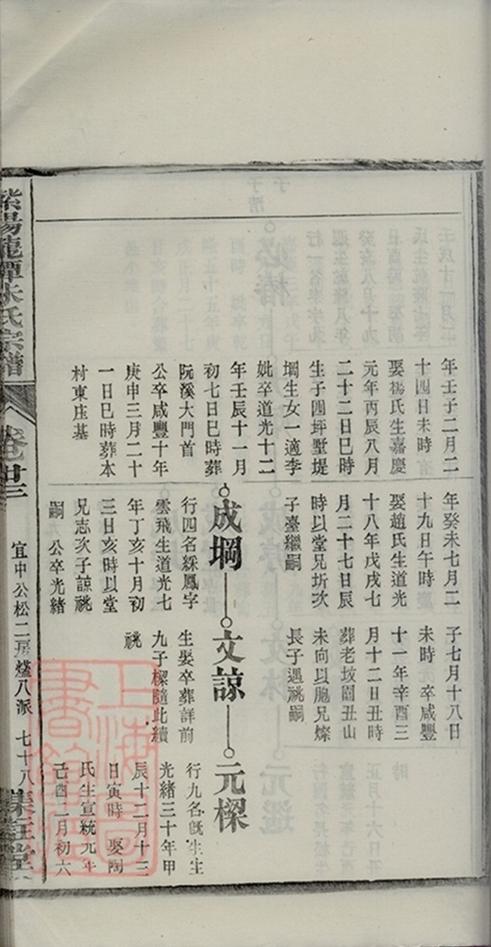 年壬子二月二
十四日未時
娶楊氏生嘉慶
元年丙辰八月
二十二日巳時
生子四坪墅堤
堈生女一適李
妣卒道光十二
年壬辰十一月
初七日巳時葬
阮溪大門首
公卒咸豐十年
庚申三月二十
一日巳時葬本
村東庄基
年癸未七月二
十九日午時
娶趙氏生道光
十八年戊戌七
月二十七日辰
時以堂兄圻次
子臺繼嗣
子七月十八日
未時 卒咸豐
十一年辛酉三
月十二日丑時
葬老坟園丑山
未向以胞兄燦
長子遇祧嗣
成堈
文諒
元樑
行四名綵鳳字
雲飛生道光七
年丁亥十月初
三日亥時以堂
兄志次子諒祧
嗣 公卒光緒
生娶卒葬詳前
九子樑隨此續
祧
行九名旣生生
光緒三十年甲
辰十二月十三
日寅時 娶陶
氏生宣統元年
己酉二月初六
紫陽龍潭朱氏宗譜
卷廿三
宜中公松二房燧八派
七十八